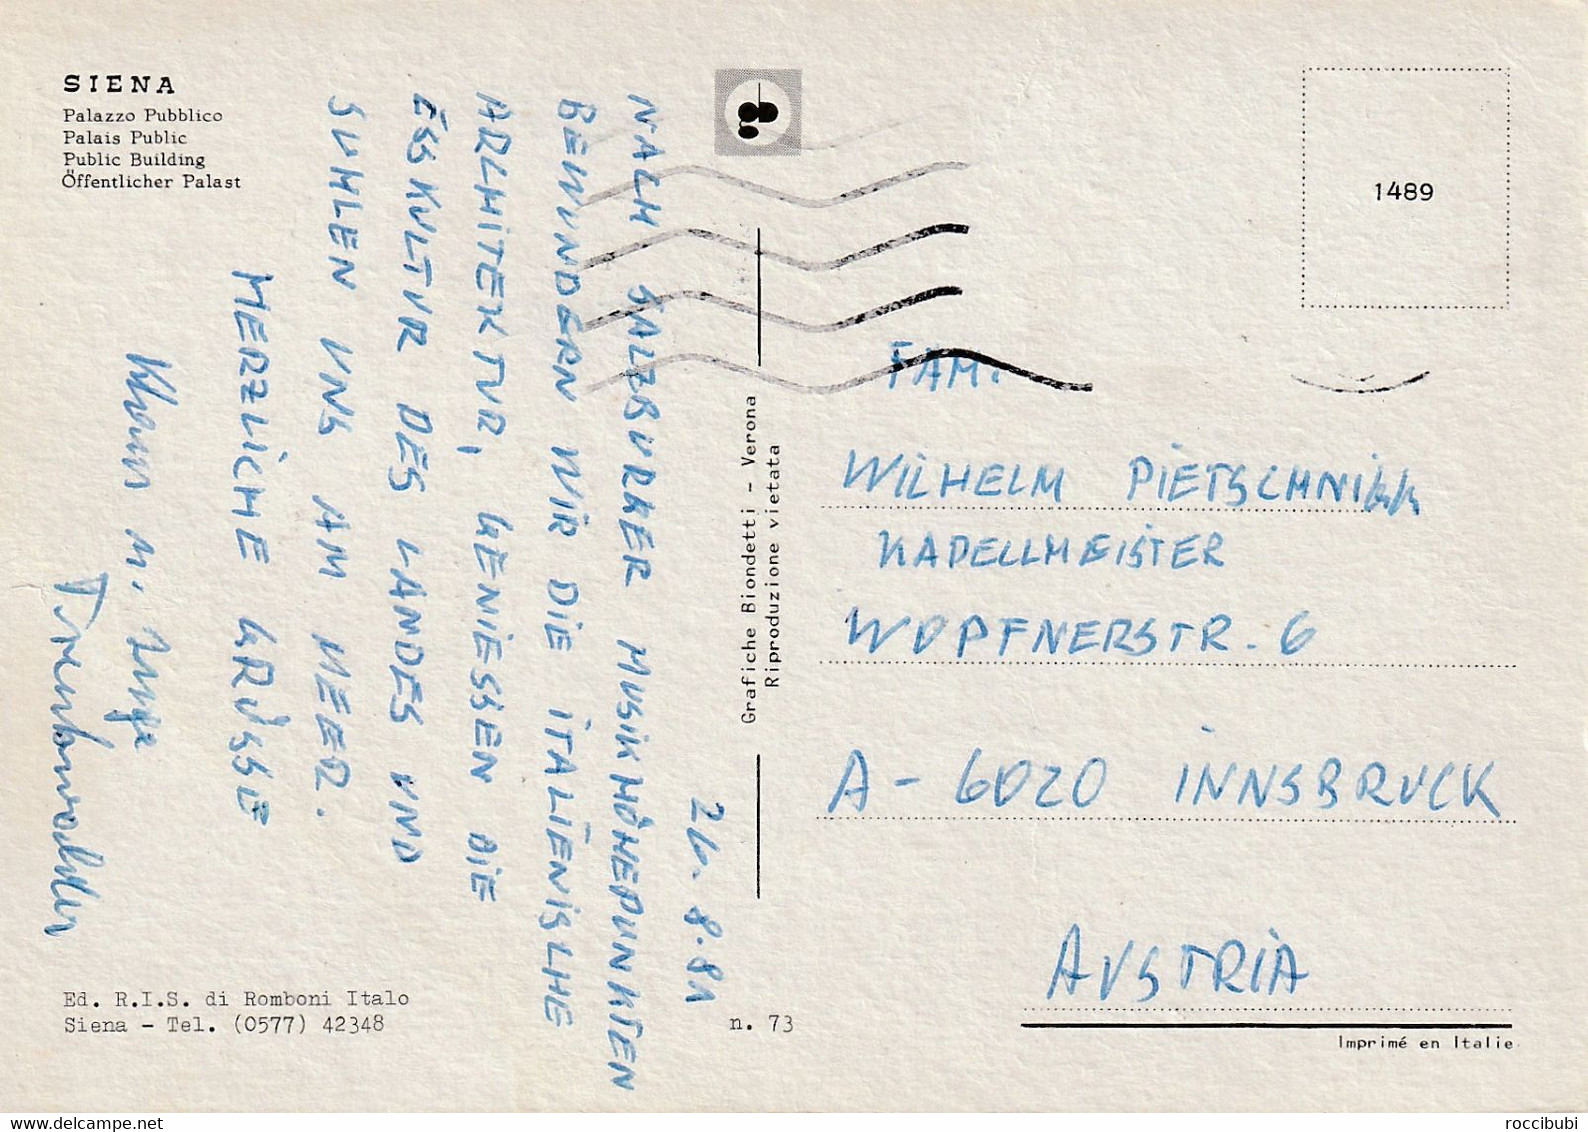 SIENA
Palazzo Pubblico
Palais Public
Public Building
Öffentlicher Palast
26.8.81
NACH SALZBURGER MUSIKHÖHEPUNKTEN
BEWUNDERN WIR DIE ITALIENISCHE
ARCHITEKTUR, GENIESSEN DIE
ESSKULTUR DES LANDES UND
SUHLEN UNS AM MEER.
HERZLICHE GRÜSSE
Grafiche Biondetti - Verona
Riproduzione vietata
1489
FAM.
WILHELM PIETSCHNIGG
KAPELLMEISTER
WOPFNERSTR. 6
A-6020 INNSBRUCK
AUSTRIA
Ed. R.I.S. di Romboni Italo
Siena - Tel. (0577) 42348
n. 73
Imprimé en Italie
roccibubi